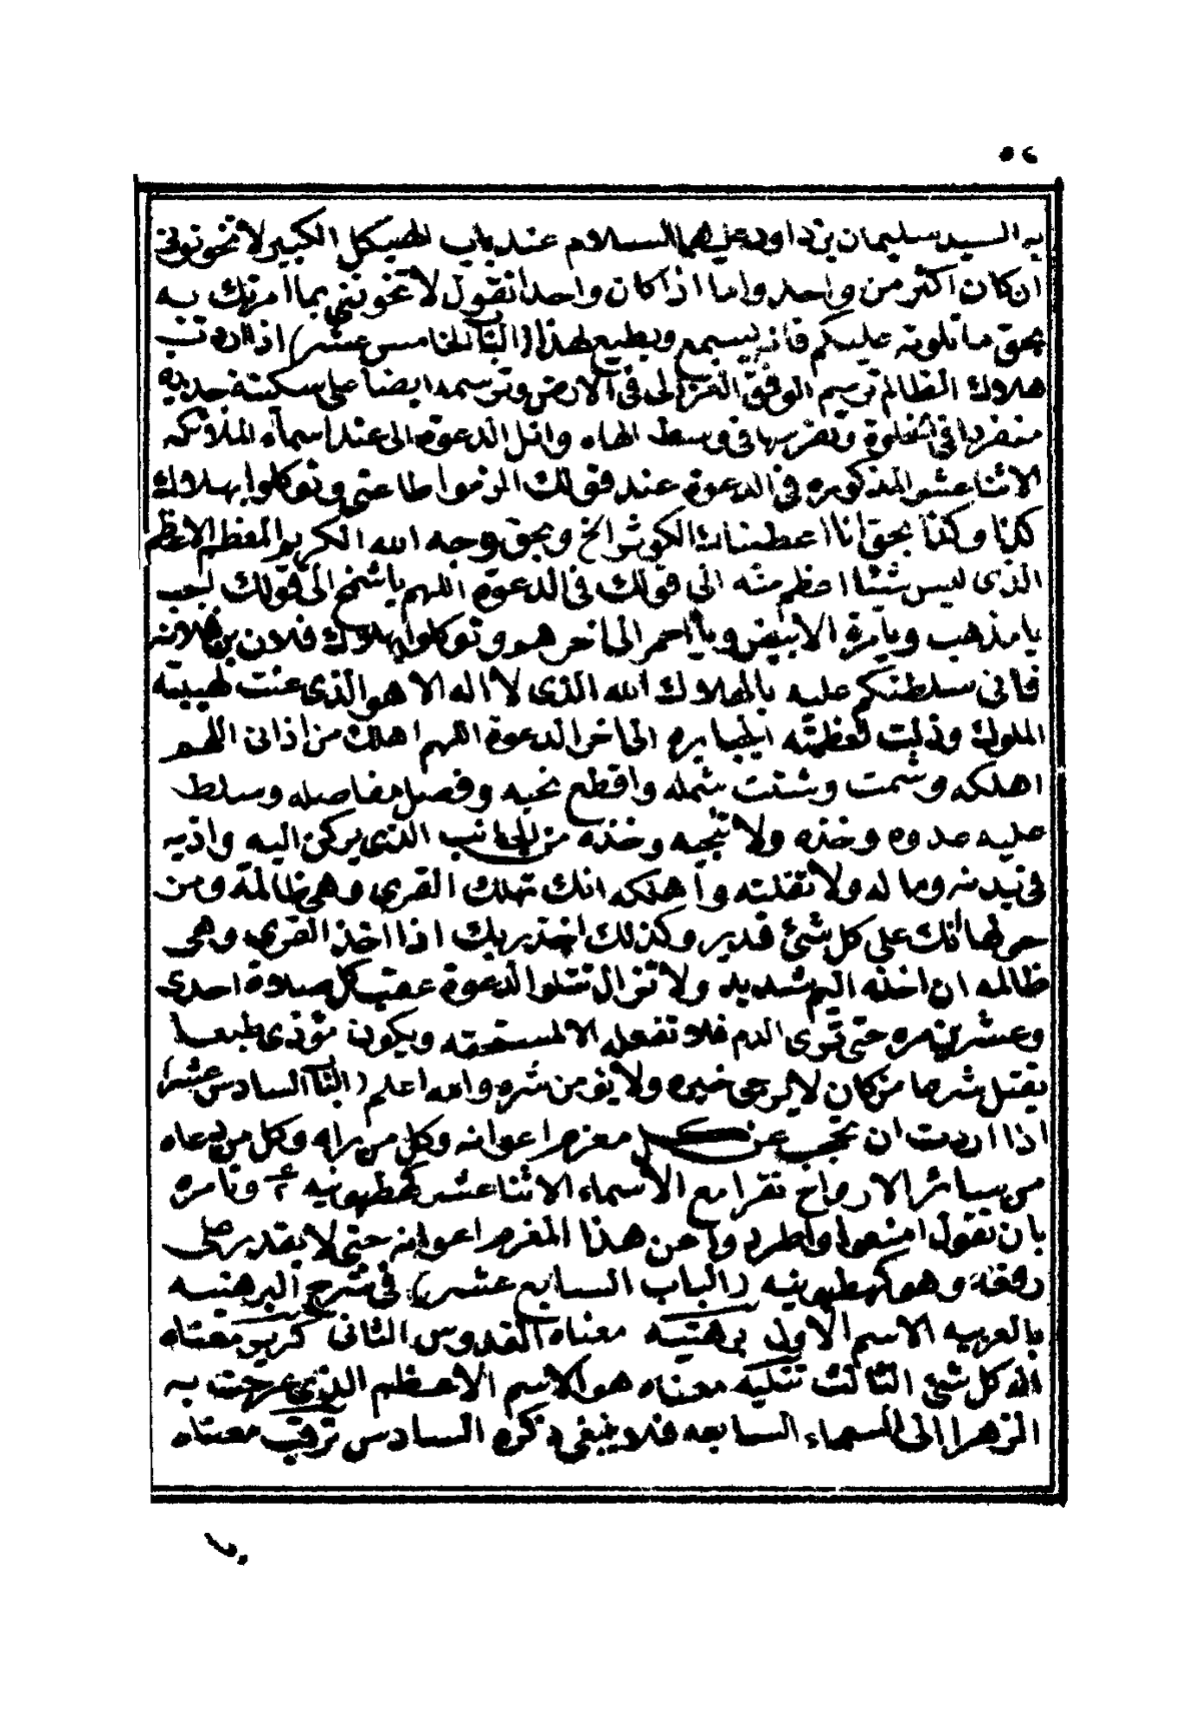 ٥٤
به السيد سليمان بن داود عليهما السلام عند باب الهيكل الكبير لا تخونونى
ان كان اكثر من واحد واما اذا كان واحدا تقول لا تخوننى بما امرتك به
بحق ما تلوته عليكم فانه يسمع ويطيع لهذا (البا الخامس عشر) اذا اردت
هلاك الظالم ترسم الوفق الغزالى فى الارض وترسمه ايضا على سكينة حديد
منفردا فى الخلوة وتغرسها فى وسط الهاء واتل الدعوة الى عند اسماء الملائكه
الاثنا عشر المذكوره فى الدعوة عند قولك الزموا طاعتى وتوكلوا بهلاك
كذا وكذا بحق انا اعطيناك الكوثر الخ وبحق وجه الله الكريم المعظم الاعظم
الذى ليس شئا اعظم منه الى قولك فى الدعوة اللهم ياشمخ الى قولك اجب
يا مذهب ويا مرة الابيض ويا احمر الى اخرهم وتوكلوا بهلاك فلان بن فلانه
فانى سلطتكم عليه بالهلاك الله الذى لا اله الا هو الذى عنت لهيبته
الملوك وذلت لعظمته الجبابره الى اخر الدعوة اللهم اهلك من اذانى اللهم
اهلكه وشمت وشتت شمله واقطع نحبه وفصل مفاصله وسلط
عليه عدوه وخذه ولا تنجيه وخذه من الجانب الذى يركن اليه واذيه
فى بدنه وماله ولا تفلته واهلكه انك تهلك القرى وهى ظالمة ومن
حولها انك على كل شئ قدير وكذلك اخذ ربك اذا اخذ القرى وهى
ظالمه ان اخذه اليم شديد ولا تزال تتلوا الدعوة عقب كل صلاة احدى
وعشرين مره حتى ترى الدم فلا تفعله الا لمستحقه ويكون مؤذى طبعا
تقتل شرعا من كان لا يرجى خيره ولا يؤمن شره والله اعلم (البا السادس عشر)
اذا اردت ان تحجب عن كل معزم اعوانه وكل من راه وكل من دعاه
من سائر الارواح تقرا مع الاسماء الاثنا عشر كهطهونيه وتامره
بان تقول امنعوا واطردوا عن هذا المعزم اعوانه حتى لا يقدر على
وهو كهطهونيه (الباب السابع عشر) فى شرح البرهتيه
بالعربيه الاسم الاول برهتيه معناه القدوس الثانى كرير معناه
اله كل شئ الثالث تتليه معناه هو الاسم الاعظم الذى عرجت به
الزهرا الى السماء السابعه فلا ينبغى ذكره السادس ترقب معناه